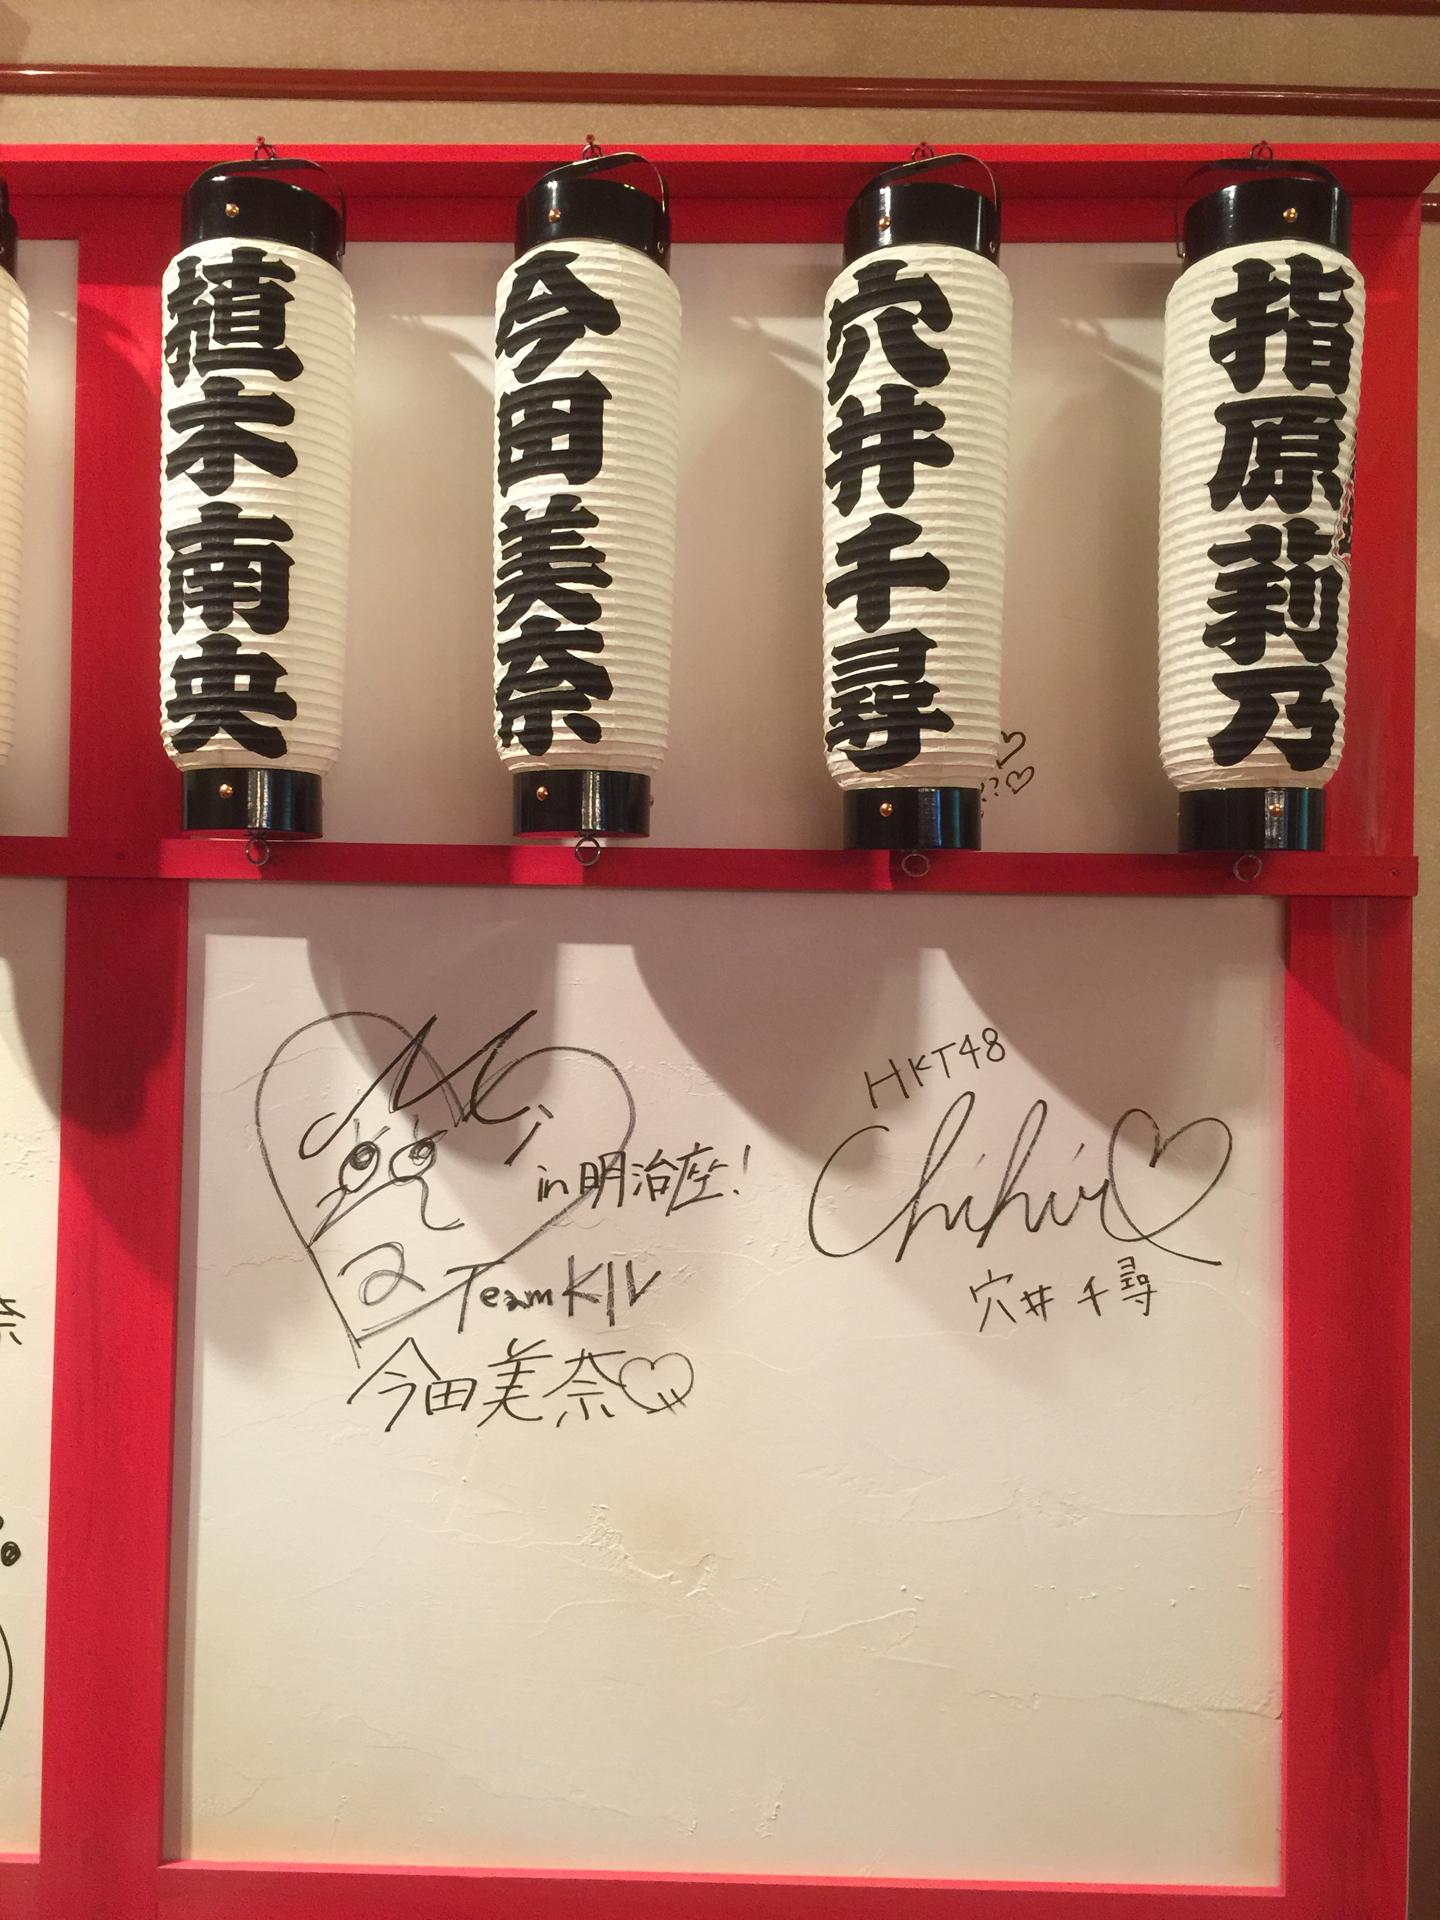 指原莉乃
穴井千尋
今田美奈
植木南央
Mi
in 明治座!
Team KIV
今田美奈
HKT48
Chihiro
穴井千尋